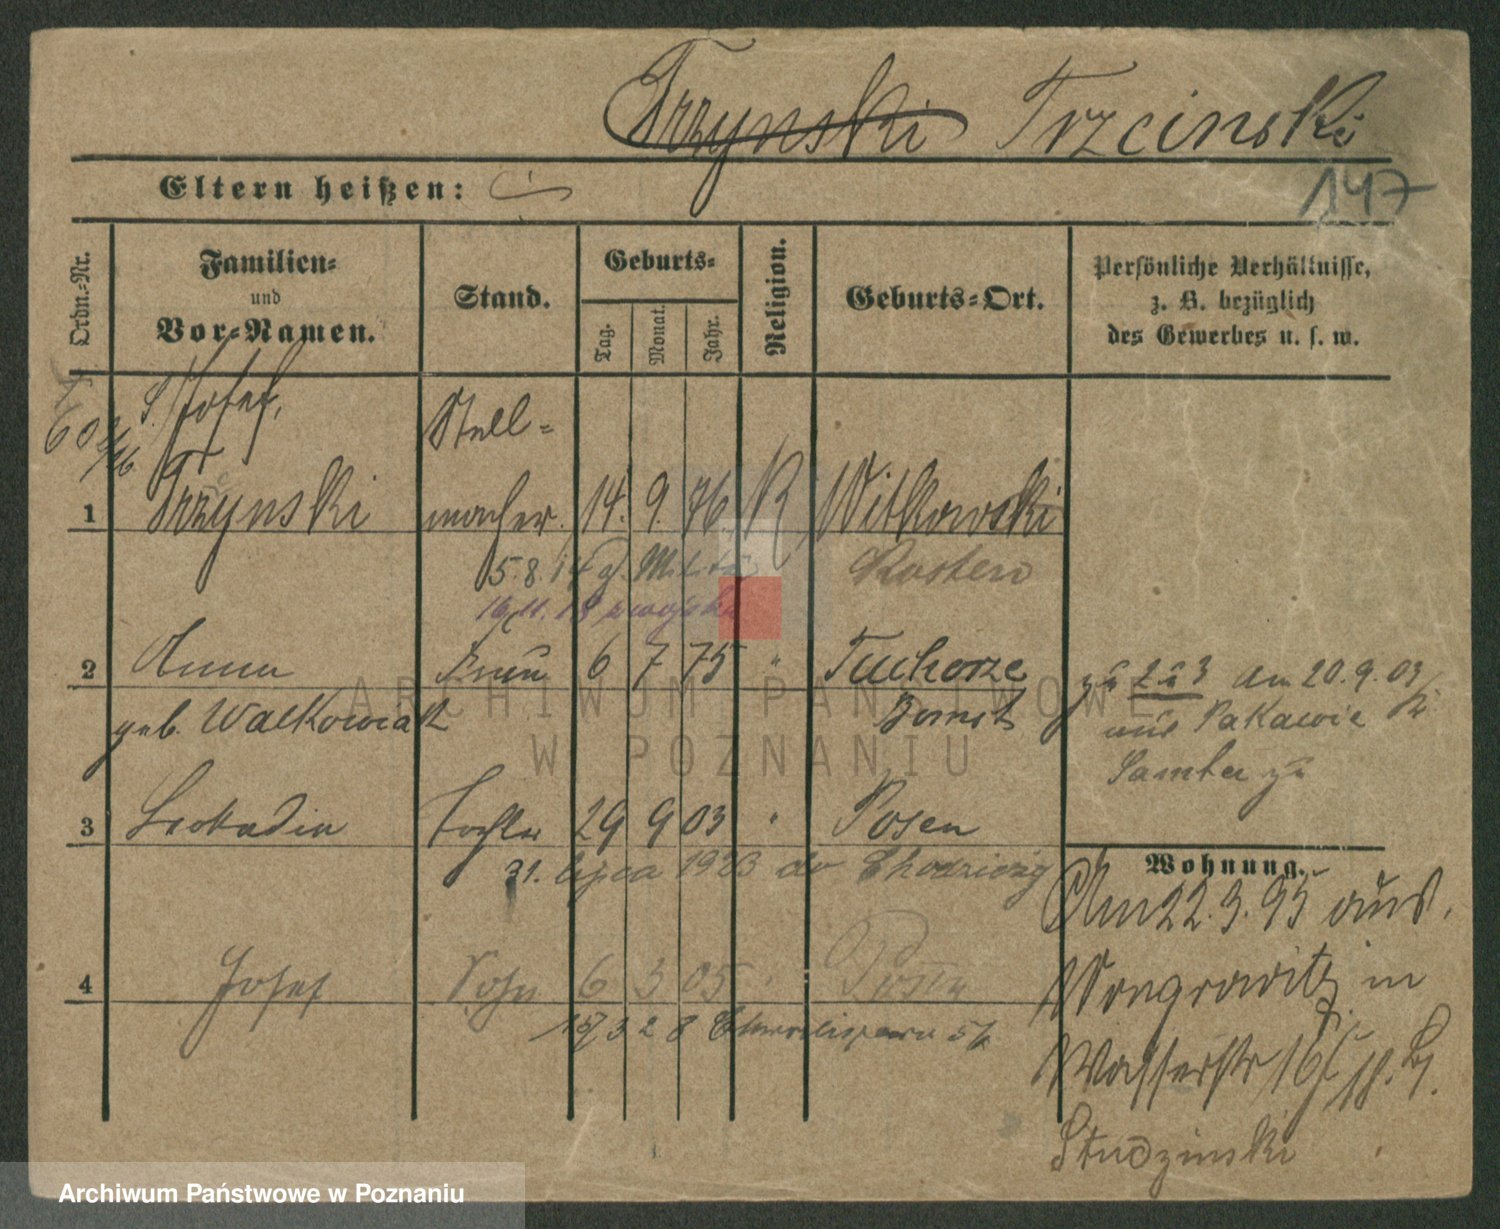 Trzynski Trzcinski
Eltern heißen:
147
Ordn.-Nr.
Familien-
und
Vor-Namen.
Stand.
Geburts-
Tag.
Monat.
Jahr.
Religion.
Geburts-Ort.
Persönliche Verhältnisse,
z. B. bezüglich
des Gewerbes u. s. w.
Josef, Stell-
1 Trzynski macher. 14. 9. 76 K Witkowski
5.8.14 Militär Kosten
16/11.18 z wojska
2 Anna Frau 6 7 75 " Tuchorze
geb. Walkowiak Bomst
zu 2 u 3 am 20.9.03
aus Pakawie
Samter zu
3 Leokadia Tochter 29 9 03 " Posen
31. lipca 1923 do Chodzieży
Wohnung.
Am 22.3.95 aus
Wongrowitz in
Wasserstr 16
Studzinski
4 Josef Sohn 6 3 05 " Posen
ARCHIWUM PAŃSTWOWE
W POZNANIU
Archiwum Państwowe w Poznaniu